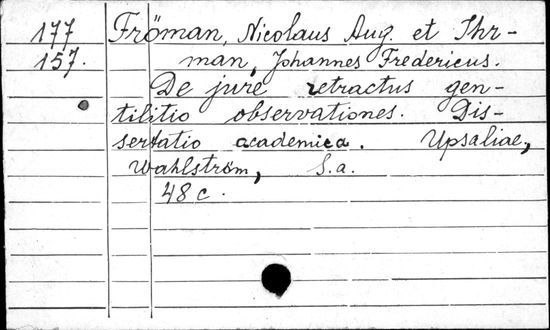 177 Fröman, Nicolaus Aug. et Ihr-
157. man, Johannes Fredericus.
De jure retractus gen-
tilitio observationes. Dis-
sertatio academica. Upsaliae,
Wahlström, S.a.
48 c.